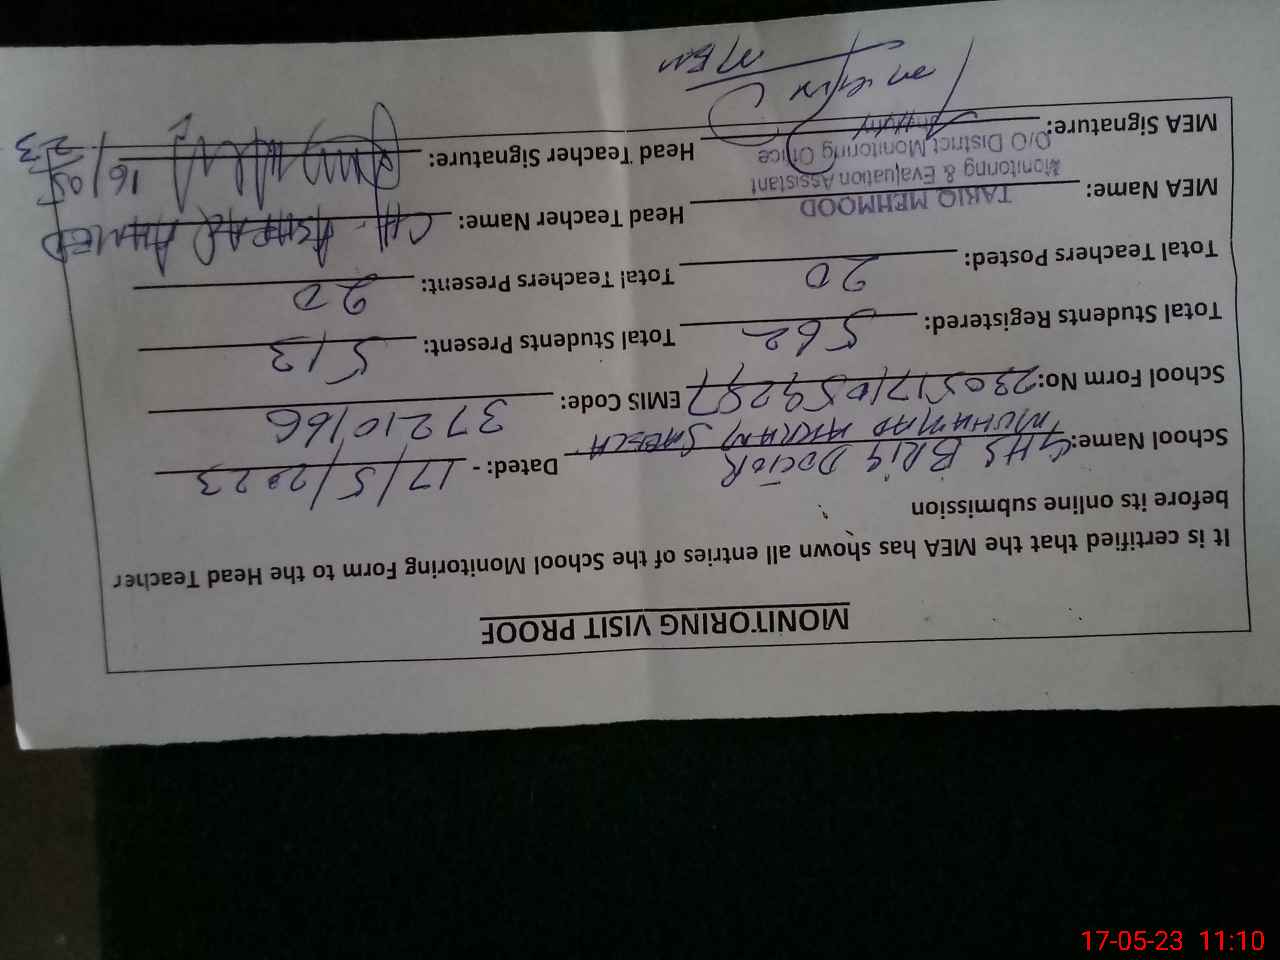 MONITORING VISIT PROOF
It is certified that the MEA has shown all entries of the School Monitoring Form to the Head Teacher
before its online submission
School Name: GHS BRIG DOCTOR Dated: - 17/5/2023
MUHAMMAD AKRAM
School Form No: EMIS Code: 37210166
Total Students Registered: 562 Total Students Present: 513
Total Teachers Posted: 20 Total Teachers Present: 20
MEA Name: TARIQ MEHMOOD Head Teacher Name: CH. ASHFAQ AHMED
Monitoring & Evaluation Assistant
O/O District Monitoring Office
MEA Signature: Head Teacher Signature: 16/05/23
MEA
17-05-23 11:10